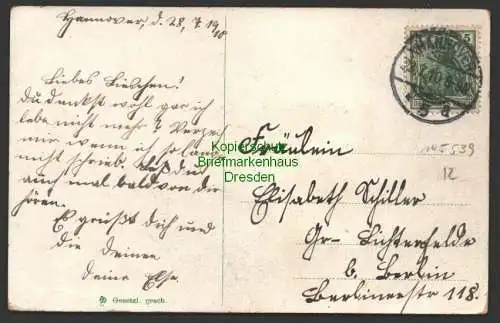 Hannover, d. 28. 7. 1910
Liebes Lieschen!
Du denkst wohl gar ich
lebe nicht mehr? Verzeih
mir wenn ich so lang
nicht schrieb. Laß du
auch mal bald von dir
hören.
Es grüßt dich und
die Deinen
deine Else.
Gesetzl. gesch.
5
HANNOVER
Kopierschutz
Briefmarkenhaus
Dresden
Fräulein
Elisabeth Schiller
Gr- Lichterfelde
b. Berlin
Berlinerstr 118.
145539
12